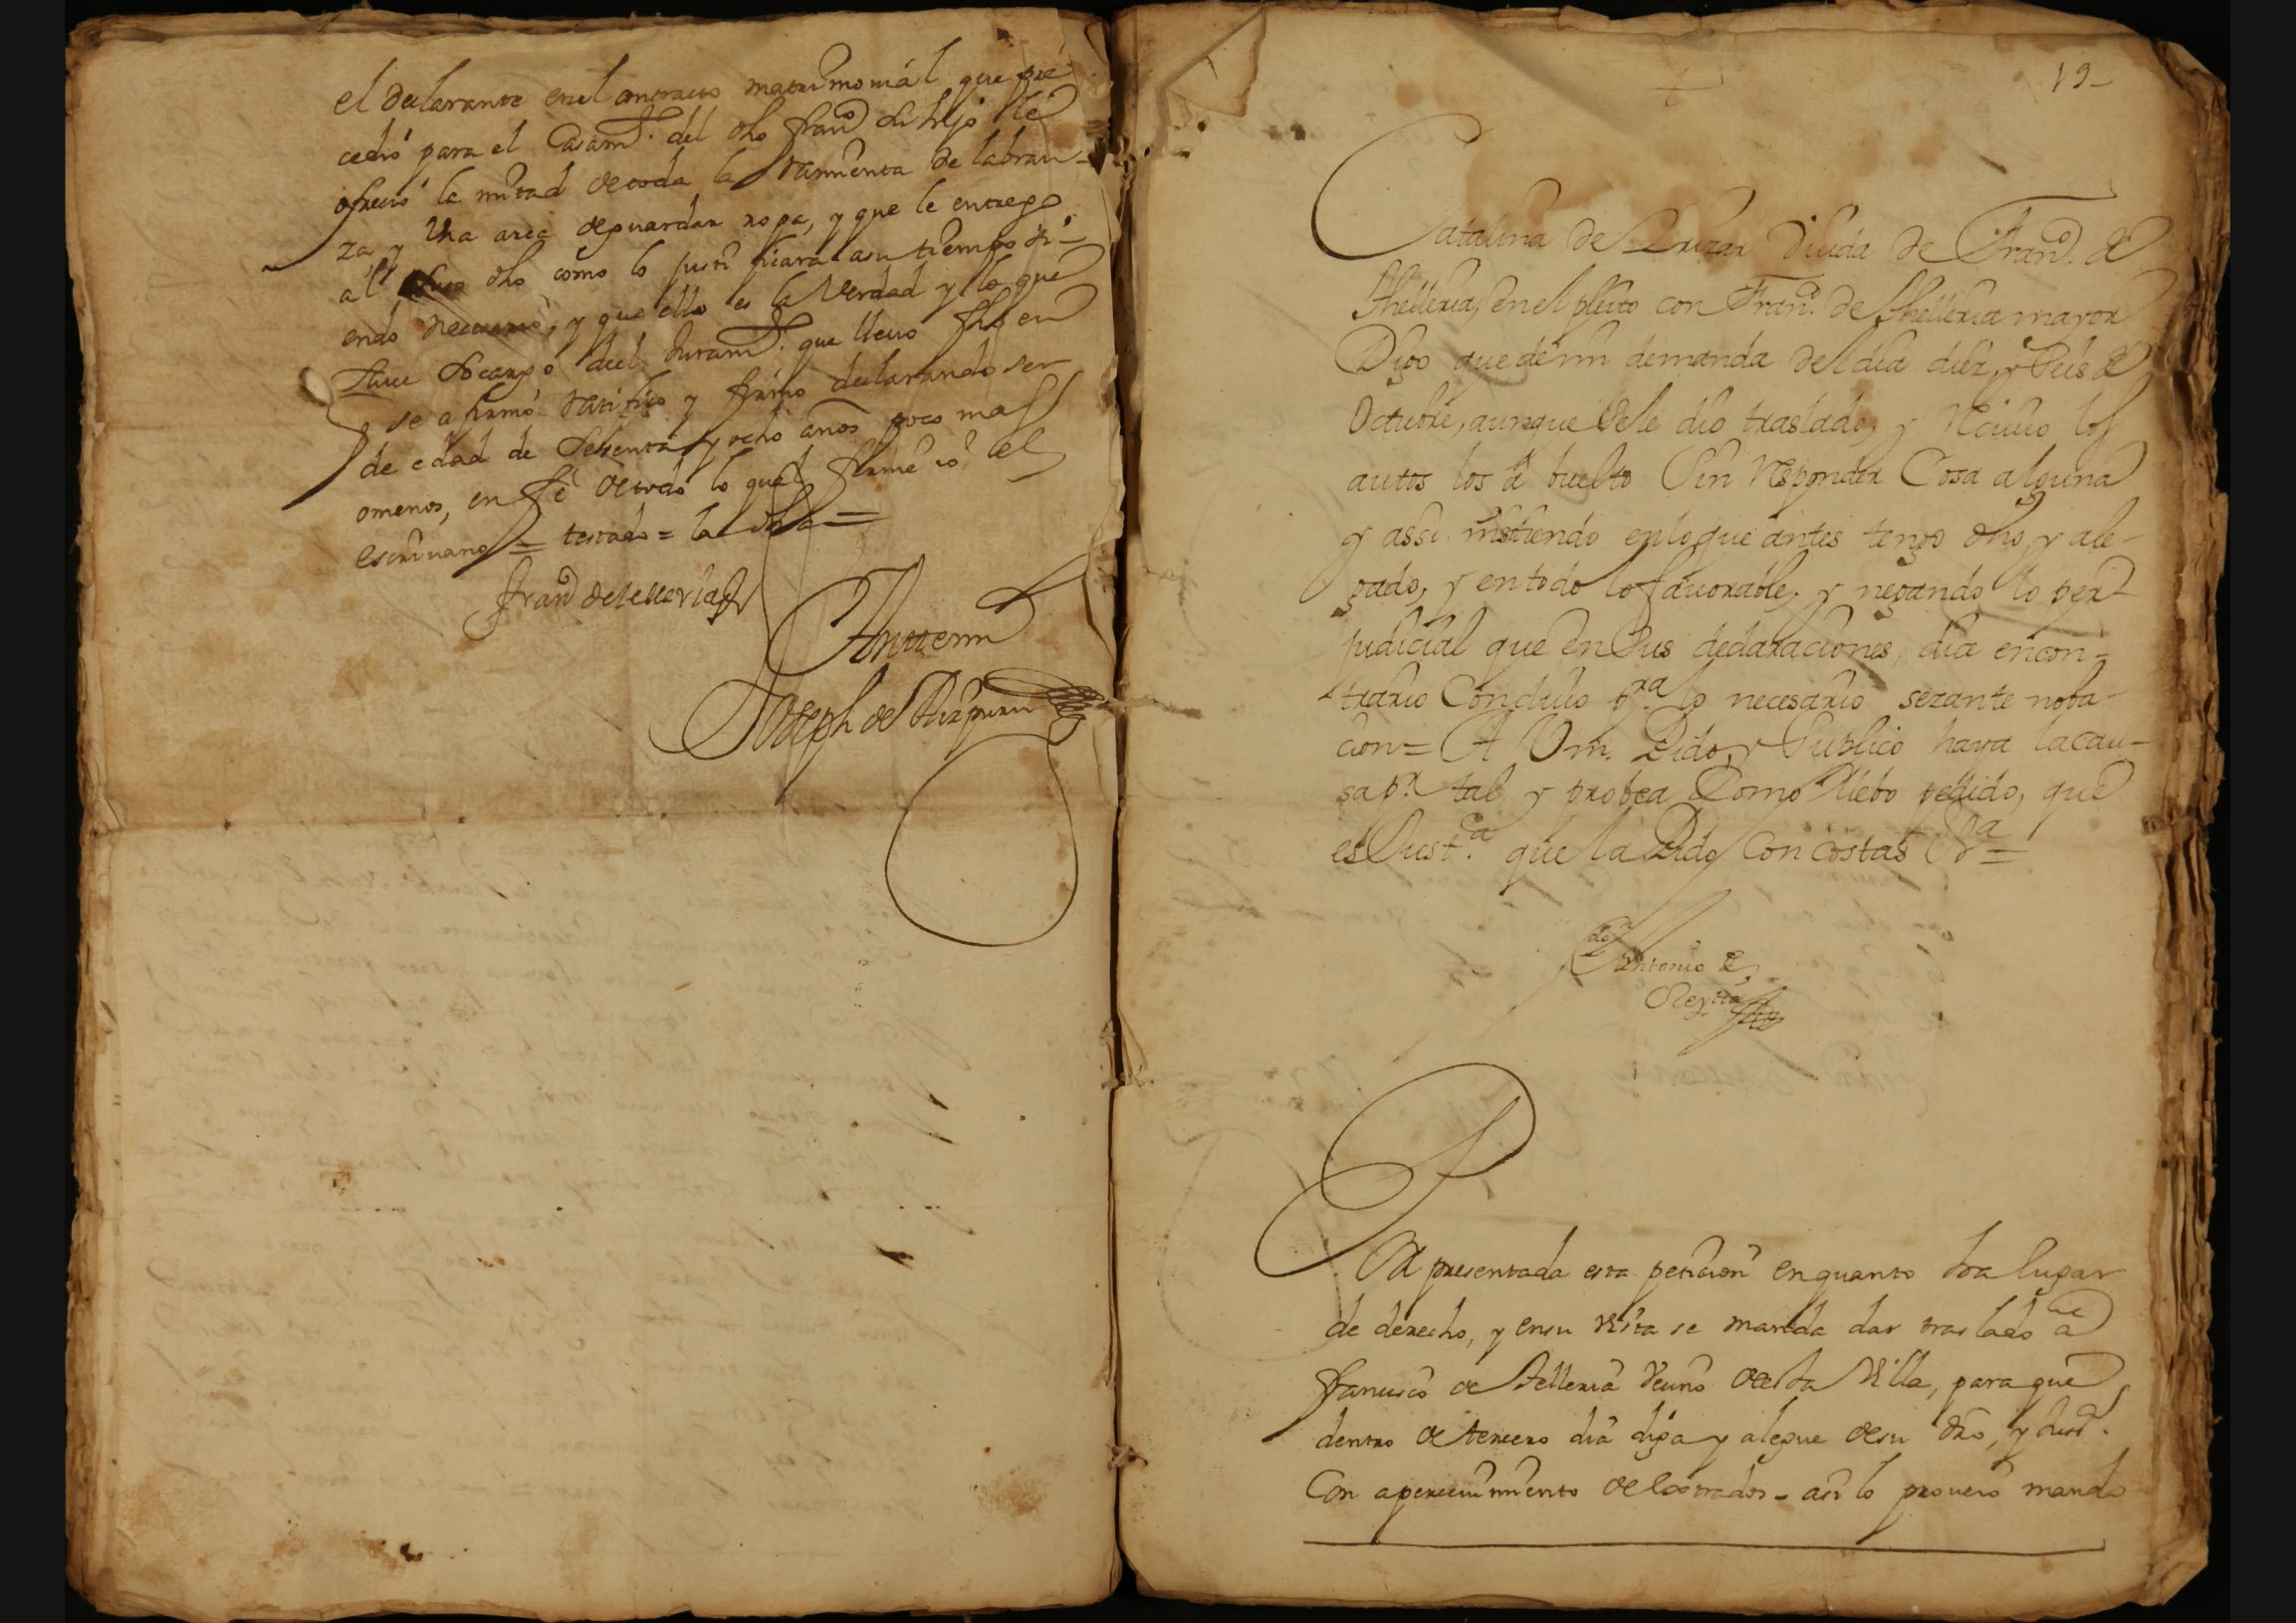 el declarante en el contracto matrimoniál que pre
cedió para el Casam.to del dho Fran.co su hijo le
ofreció la mitad de toda la erramienta de labran-
za y Una arca de guardar ropa, y que le entrego
al dho como lo justificara a su tiempo si-
endo necesario, y que ello es la Verdad y lo que
save so cargo del Juram.to que lleuo fho en
que se afirmó ratifico y firmo declarando ser
de edad de sesenta y ocho años poco mas
omenos, en fé de todo lo qual firmé io el
escriuano = testado = la
Fran.co de telleria
Ante mi
Joseph de Aizpuru
19
Catalina de Viuda de Fran.co de
thelleria, en el pleito con Fran.co de thelleria mayor
Digo que de mi demanda del dia diez y Seis de
Octubre, aunque Sele dio traslado, y Reciuio los
autos los á buelto Sin Responder Cosa alguna
y assi insistiendo enloque antes tengo dho, y ale-
gado, y en todo lo favorable, y negando lo per-
judicial que en Sus declaraciones, dia encon-
trario Concluio p.ra lo necesario sezante noba-
cion = A Vm. Pido, y Suplico haya la cau-
sa p.r tal y probea Como llebo pedido, que
es Just.a que la Pido Con costas V.a =
L.do Antonio de
Por presentada esta peticion en quanto ha lugar
de derecho, y en su vista se manda dar traslado a
francisco de Telleria vecino de esta Villa, para que
dentro de tercero dia diga y alegue de su dro, y Just.a
Con aperceuimiento de los estrados - assi lo proueio mando